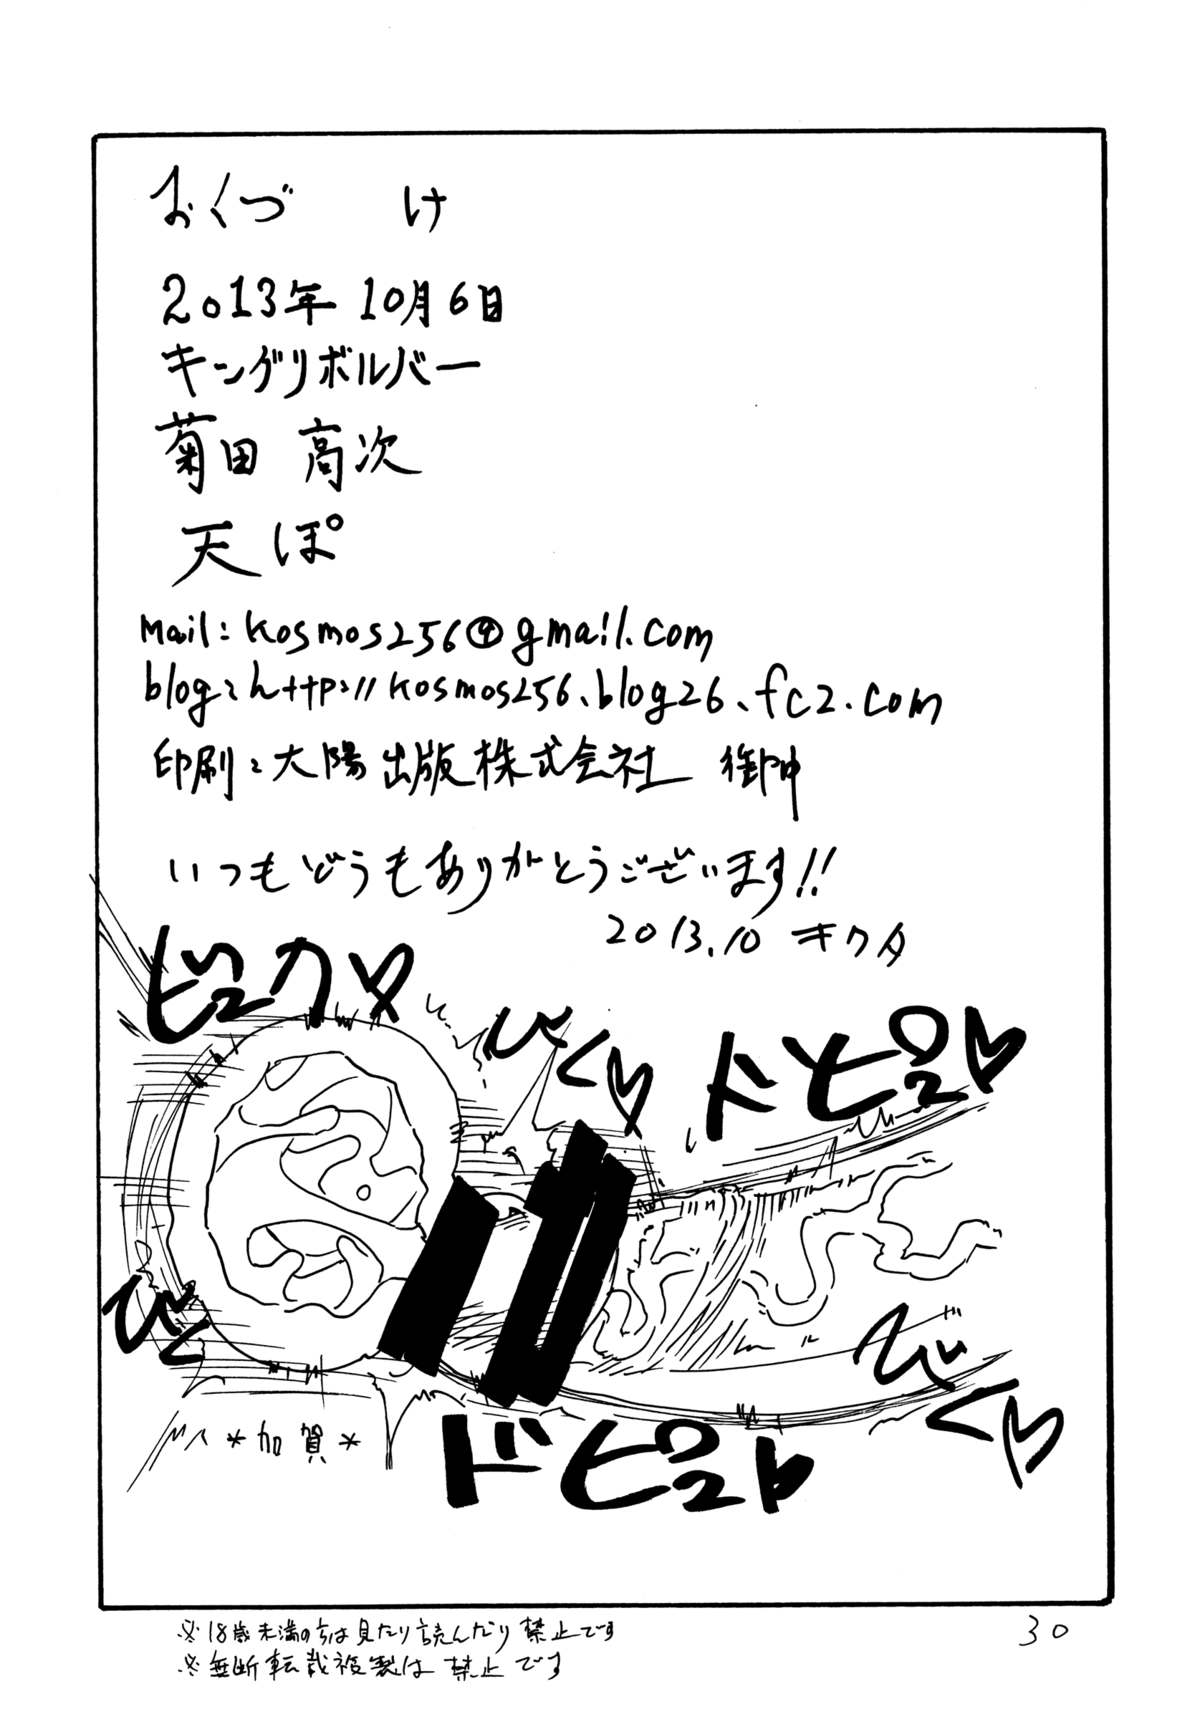 おくづ け
2013年 10月6日
キングリボルバー
菊田 高次
天ぽ
Mail: kosmos256@gmail.com
blog: http://kosmos256.blog26.fc2.com
印刷: 大陽出版株式会社 御中
いつもどうもありがとうございます!!
2013.10 キクタ
ビュクッ♥
びくっ♥
ドピュッ♥
びくっ
びくっ♥
*加賀*
ドピュッ
30
※18歳未満の方は見たり読んだり禁止です
※無断転載複製は禁止です